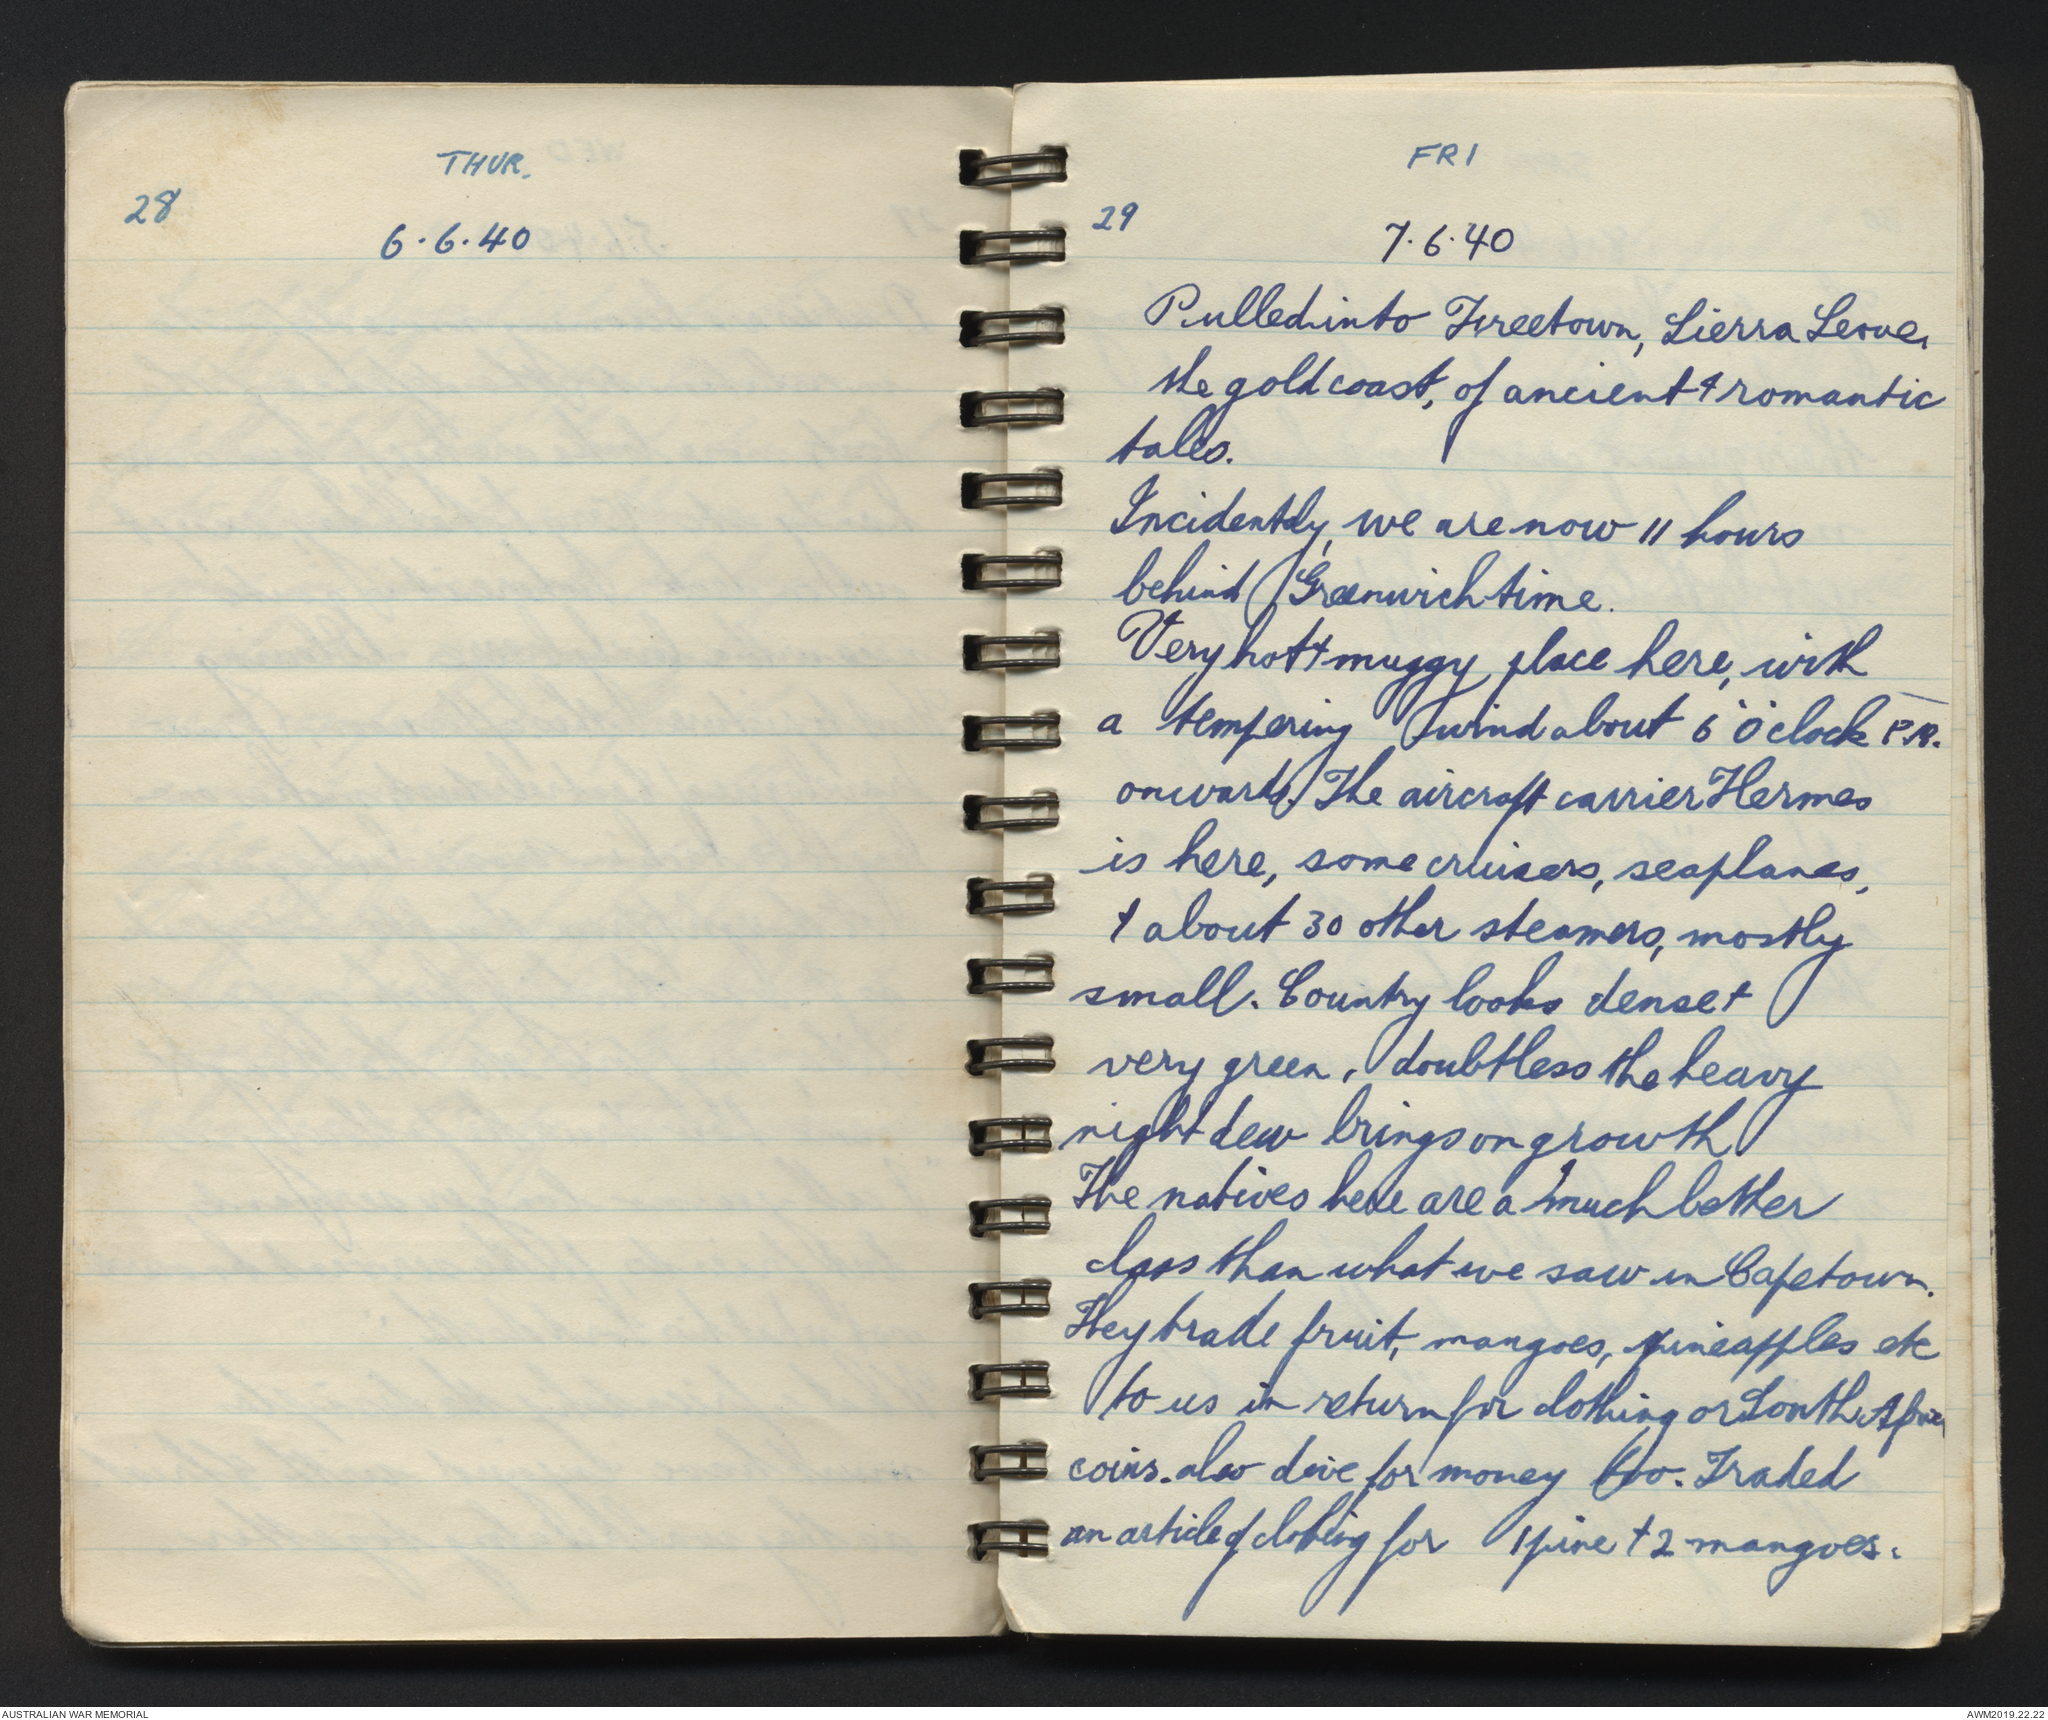 THUR.
28
6.6.40
FRI
29
7.6.40
Pulled into Freetown, Sierra Leone,
the gold coast, of ancient & romantic
tales.
Incidently, we are now 11 hours
behind Greenwich time.
Very hot & muggy place here, with
a tempering wind about 6 O'clock P.M.
onwards. The aircraft carrier Hermes
is here, some cruisers, seaplanes,
& about 30 other steamers, mostly
small. Country looks dense &
very green, doubtless the heavy
night dew brings on growth
The natives here are a much better
class than what we saw in Capetown.
They trade fruit, mangoes, pineapples etc
to us in return for clothing or South
coins. also dive for money too. Traded
an article of clothing for 1 pine & 2 mangoes.
AUSTRALIAN WAR MEMORIAL
AWM2019.22.22